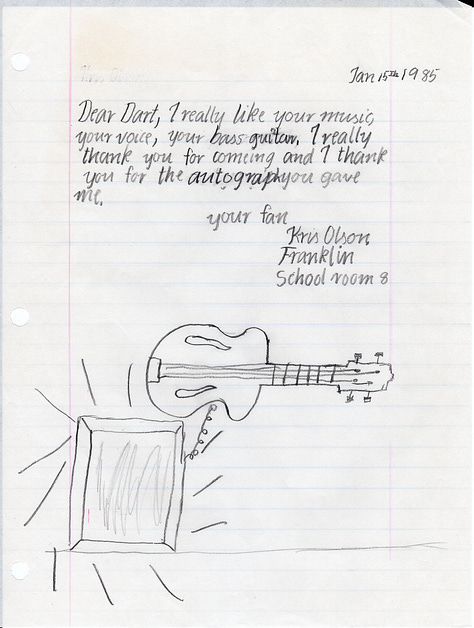 Jan 15th 1985
Dear Dart, I really like your music,
your voice, your bass guitar. I really
thank you for comeing and I thank
you for the autograph you gave
me.
your fan
Kris Olson
Franklin
School room 8